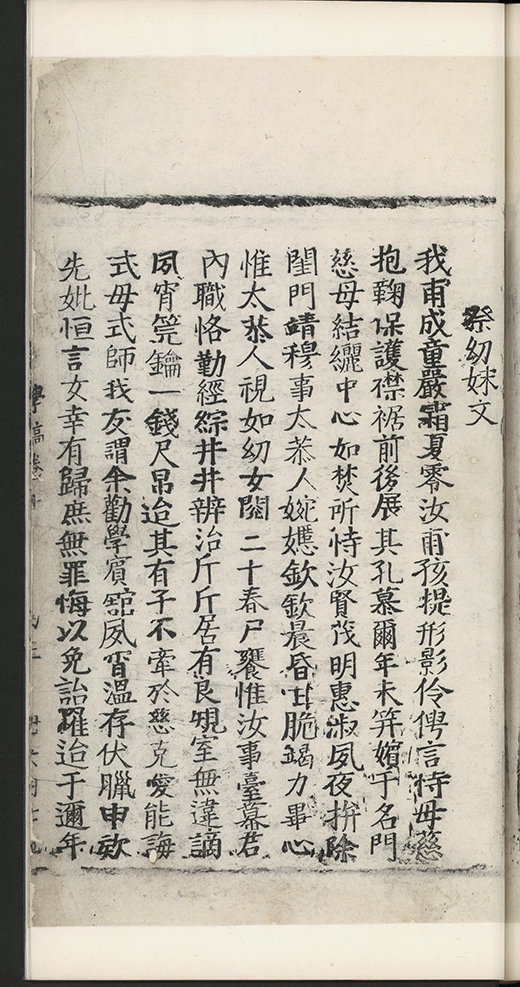 祭幼妹文
我甫成童嚴霜夏零汝甫孩提形影伶俜言恃母慈
抱鞠保護襟裾前後展其孔慕爾年未笄嬪于名門
慈母結纚中心如焚所恃汝賢茂明惠淑夙夜拚除
閨門靖穆事太恭人婉嫕欽欽晨昏甘脆竭力畢心
惟太恭人視如幼女閱二十春尸饔惟汝事臺幕君
內職恪勤經綜井井辨治斤斤居有良規室無違謫
夙宵筦鑰一錢尺帛迨其有子不牽於慈克愛能誨
式母式師我友謂余勸學賓館夙宵溫存伏臘申款
先妣恒言女幸有歸庶無罪悔以免詒罹迨于邇年
學稿卷